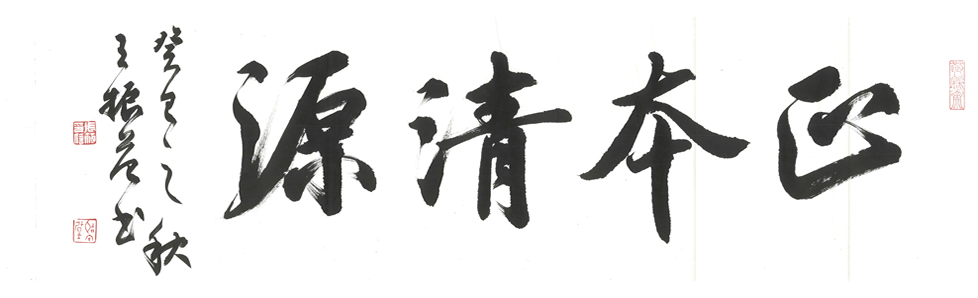 正本清源
癸巳之秋
王振美书